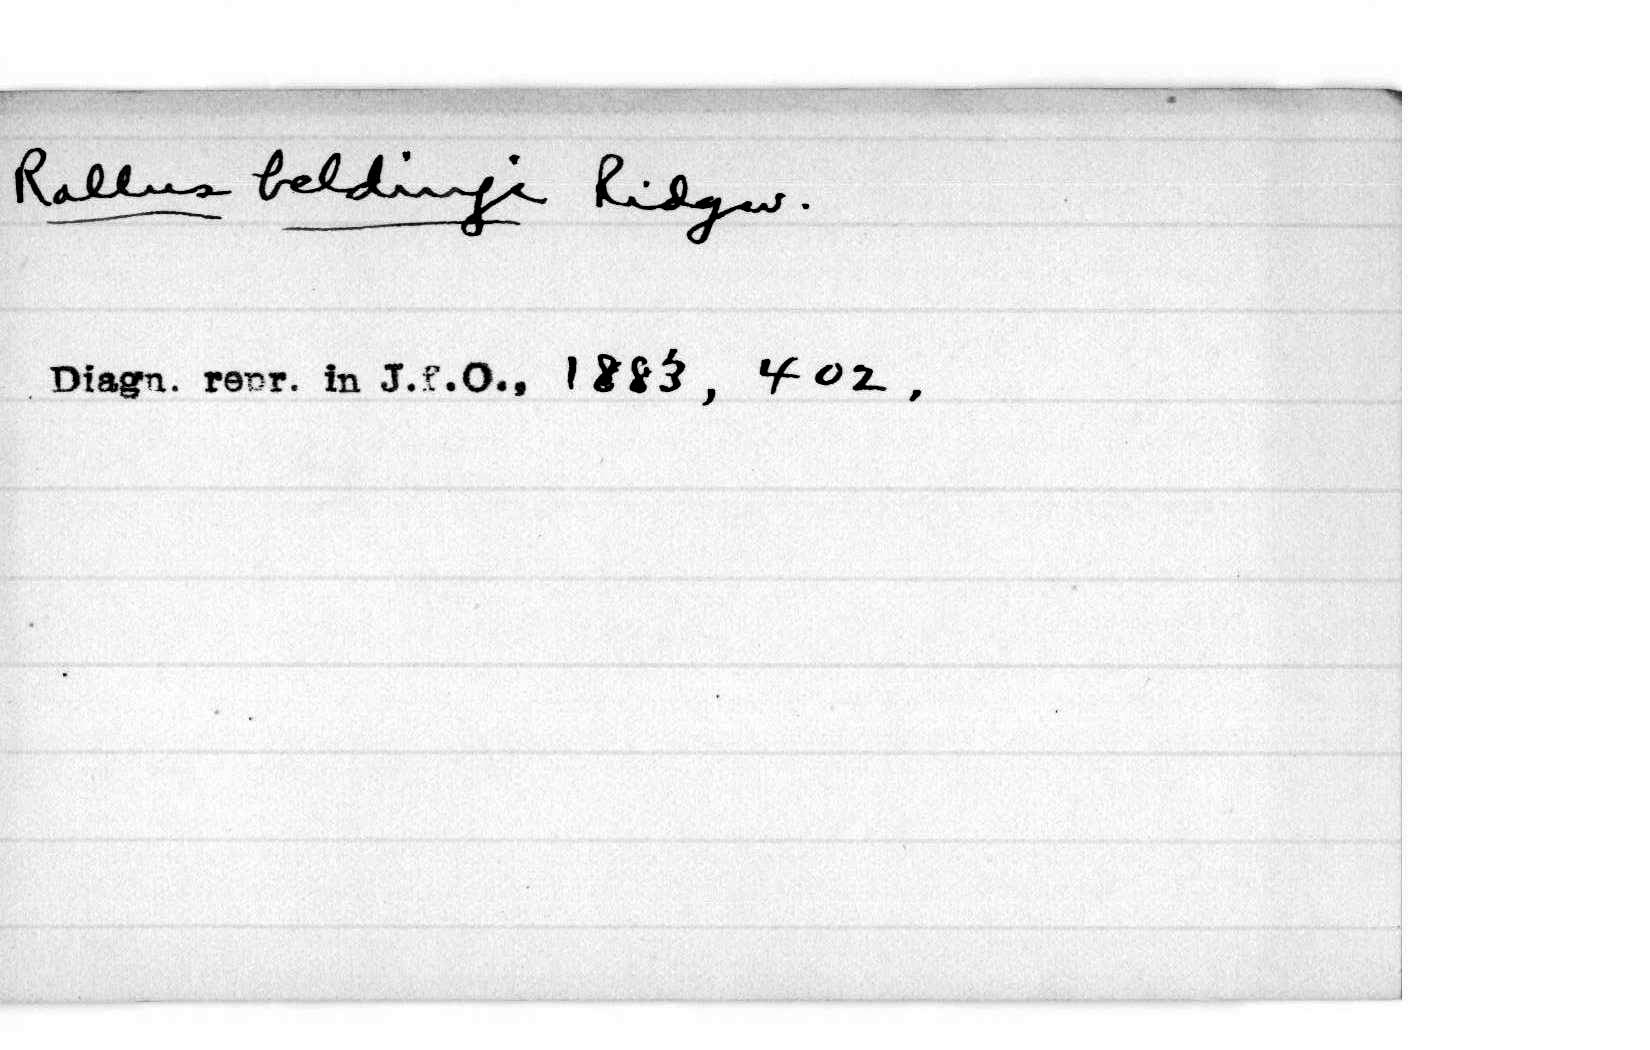 Rallus beldingi Ridgw.
Diagn. repr. in J.f.O., 1883, 402,